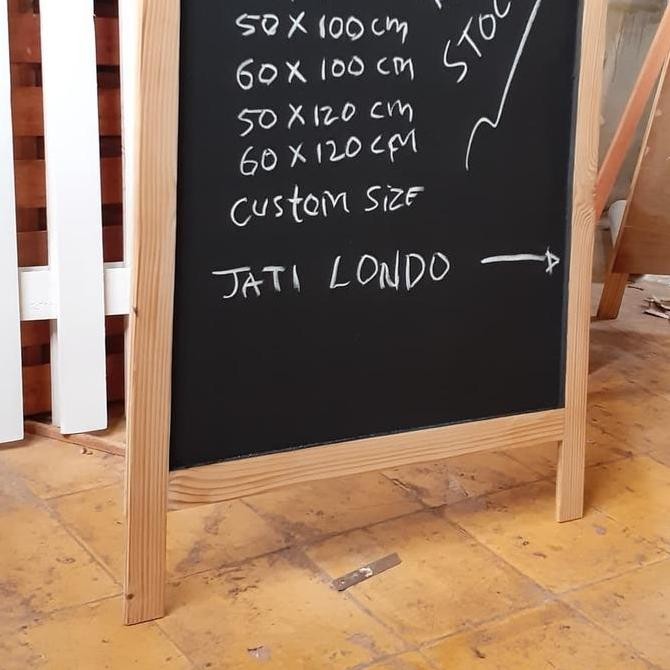 50 X 100 cm
60 X 100 cm
50 X 120 cm
60 X 120 cm
Custom SIZE
JATI LONDO